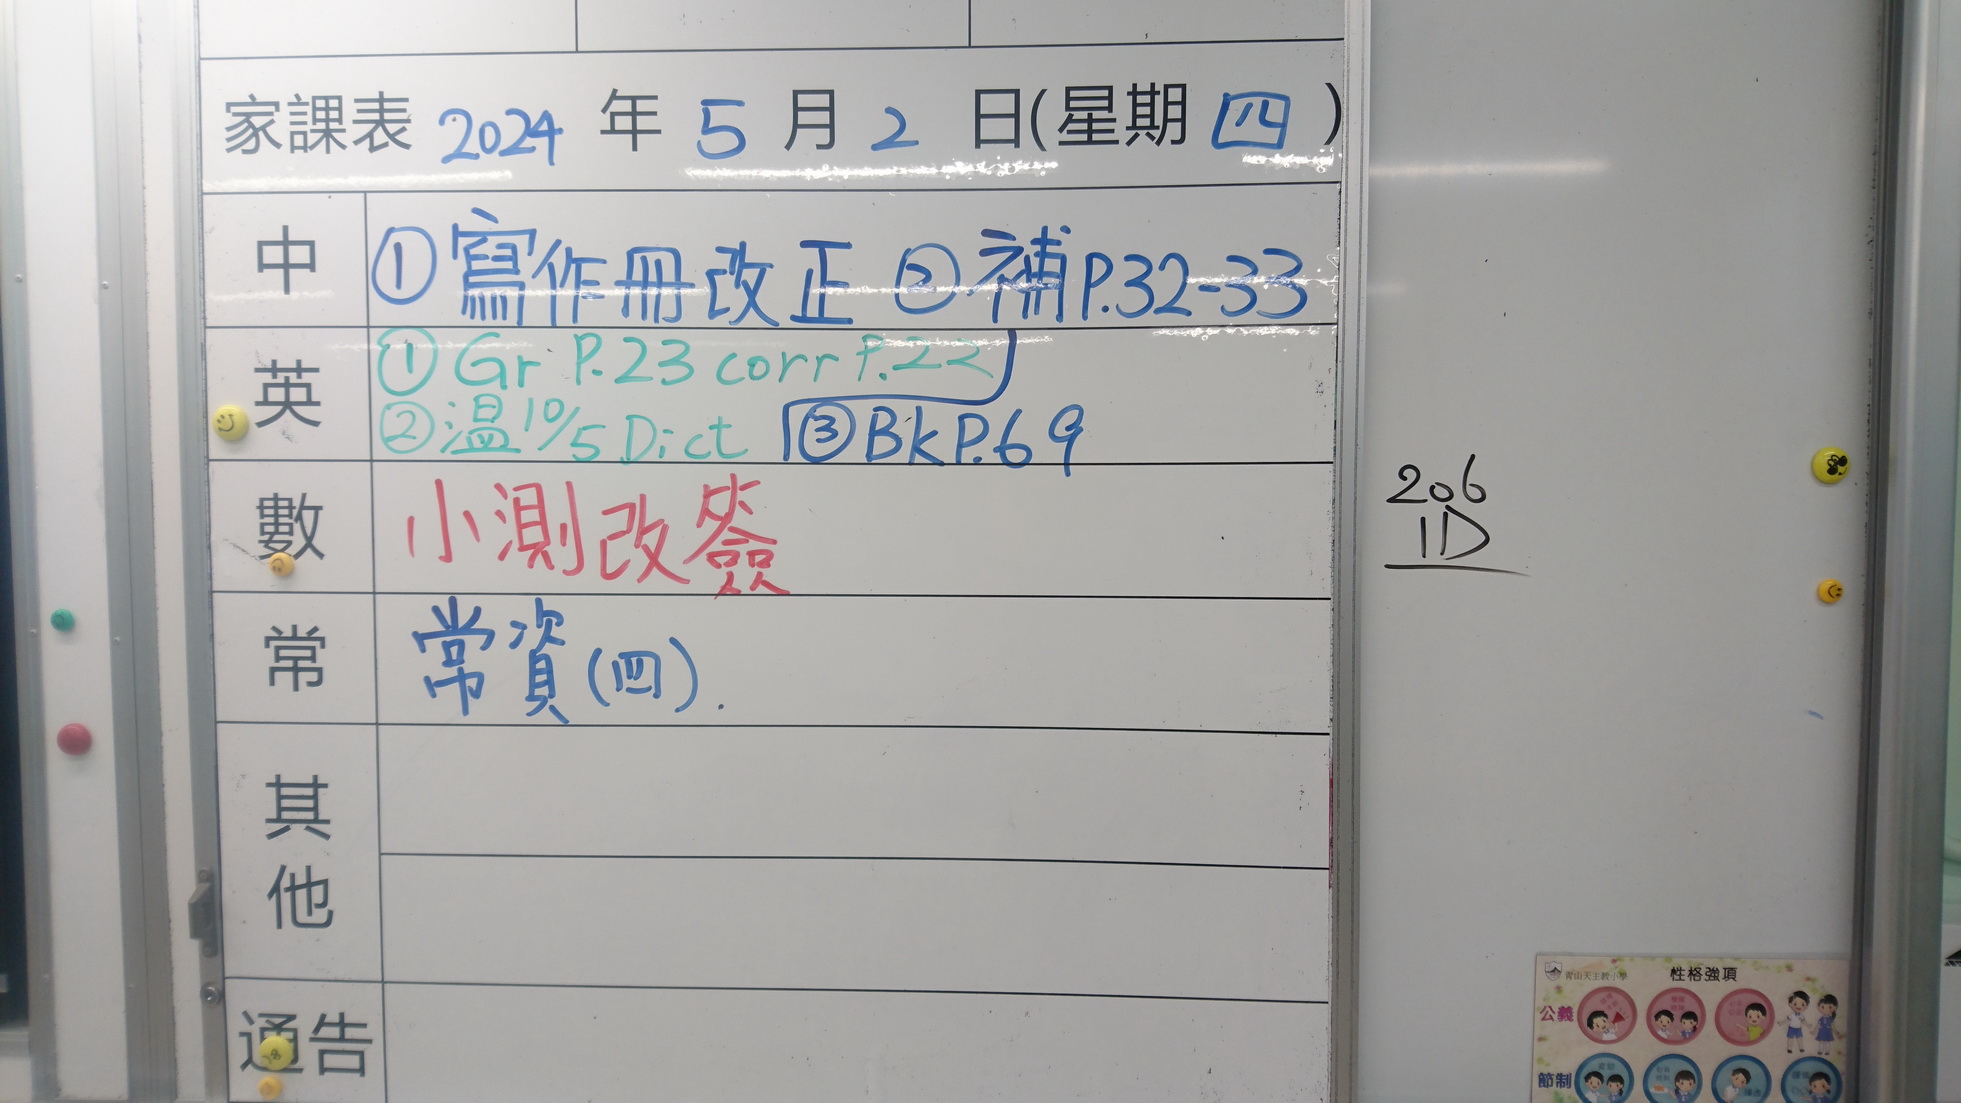 家課表 2024 年 5 月 2 日(星期 四 )
中 ① 寫作冊改正 ② 補 P.32-33
英 ① Gr P.23 corr P.22
② 温 10/5 Dict ③ Bk P.69
數 小測改簽
常 常資(四).
其他
通告
206
1D
青山天主教小學 性格強項
公義
節制